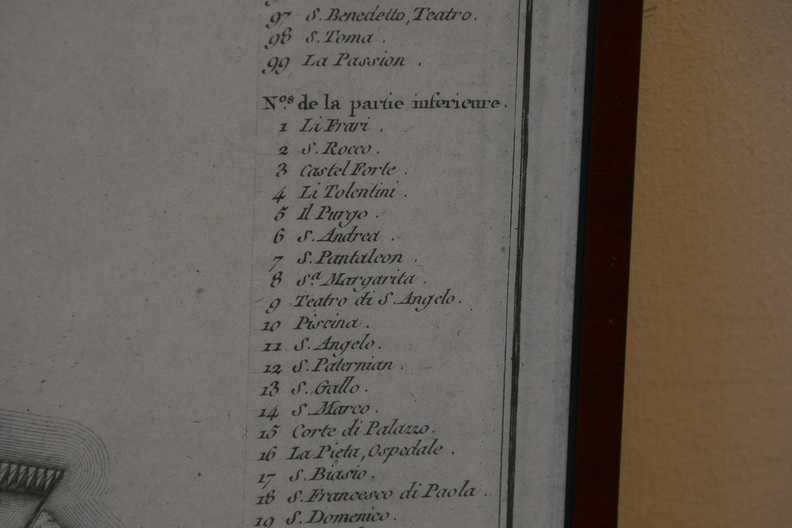 97 S. Benedetto, Teatro.
98 S. Toma .
99 La Passion .
N.ºˢ de la partie inferieure.
1 Li Frari .
2 S. Rocco.
3 Castel Forte .
4 Li Tolentini .
5 Il Purgo .
6 S. Andrea .
7 S. Pantaleon .
8 S.ª Margarita .
9 Teatro di S. Angelo.
10 Piscina .
11 S. Angelo.
12 S. Paternian .
13 S. Gallo .
14 S. Marco .
15 Corte di Palazzo.
16 La Pieta, Ospedale .
17 S. Biasio.
18 S. Francesco di Paola .
19 S. Domenico.